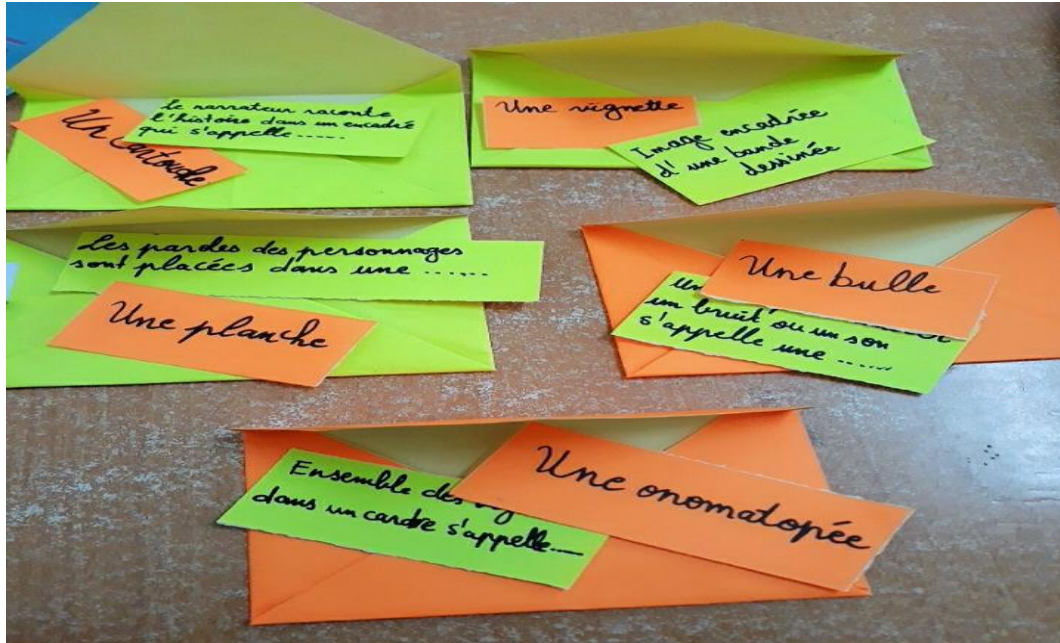 Un Cartouche
Le narrateur raconte
l'histoire dans un encadré
qui s'appelle .....
Une vignette
Image encadrée
d'une bande
dessinée
Les paroles des personnages
sont placées dans une ......
Une planche
Une bulle
un bruit ou un son
s'appelle une ......
Ensemble des
dans un cardre s'appelle....
Une onomatopée